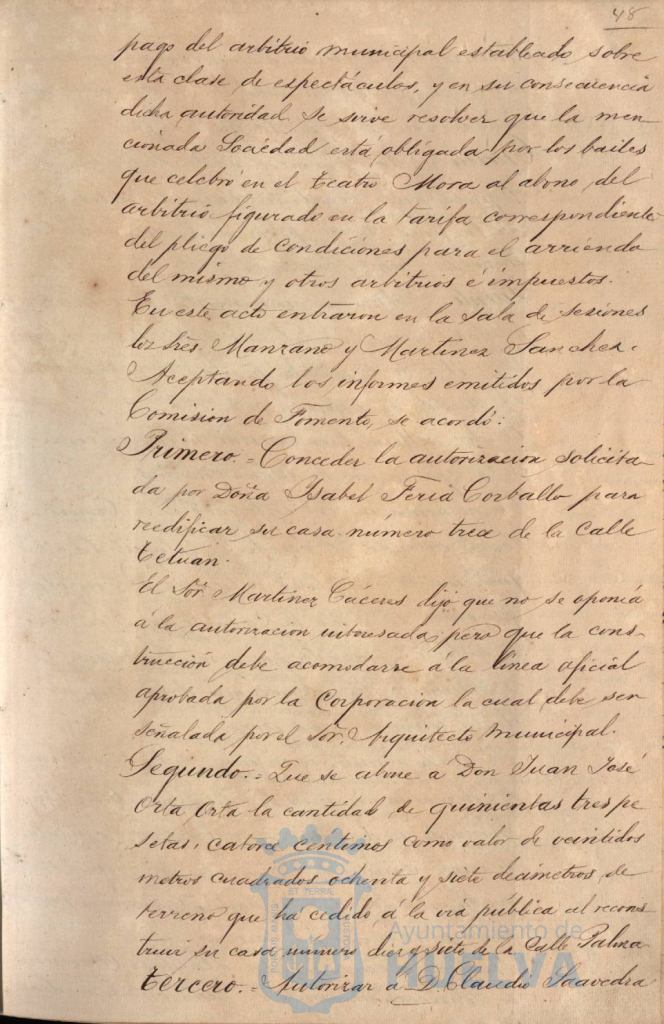 48
pago del arbitrio municipal establecido sobre
esta clase de espectáculos, y en su consecuencia
dicha autoridad se sirve resolver que la men-
cionada Sociedad está obligada por los bailes
que celebró en el teatro Mora al abono del
arbitrio figurado en la tarifa correspondiente
del pliego de condiciones para el arriendo
del mismo y otros arbitrios é impuestos.
En este acto entraron en la sala de sesiones
los Sres. Manzano y Martinez Sanchez.
Aceptando los informes emitidos por la
Comision de Fomento, se acordó:
Primero.= Conceder la autorizacion solicita-
da por Doña Ysabel Feria Corballo para
reedificar su casa número trece de la Calle
Tetuan.
El Sor. Martinez Cáceres dijo que no se oponia
á la autorizacion interesada, pero que la cons-
trucción debe acomodarse á la linea oficial
aprobada por la Corporacion la cual debe ser
señalada por el Sor. Arquitecto municipal.
Segundo.= Que se abone á Don Juan José
Orta Orta la cantidad de quinientas tres pe-
setas, catorce centimos como valor de veintidos
metros cuadrados ochenta y siete decimetros de
terreno que ha cedido á la via pública al recons-
truir su casa numero diez y siete de la Calle Palma.
Tercero.= Autorizar á D. Claudio Saavedra
Ayuntamiento de
HUELVA